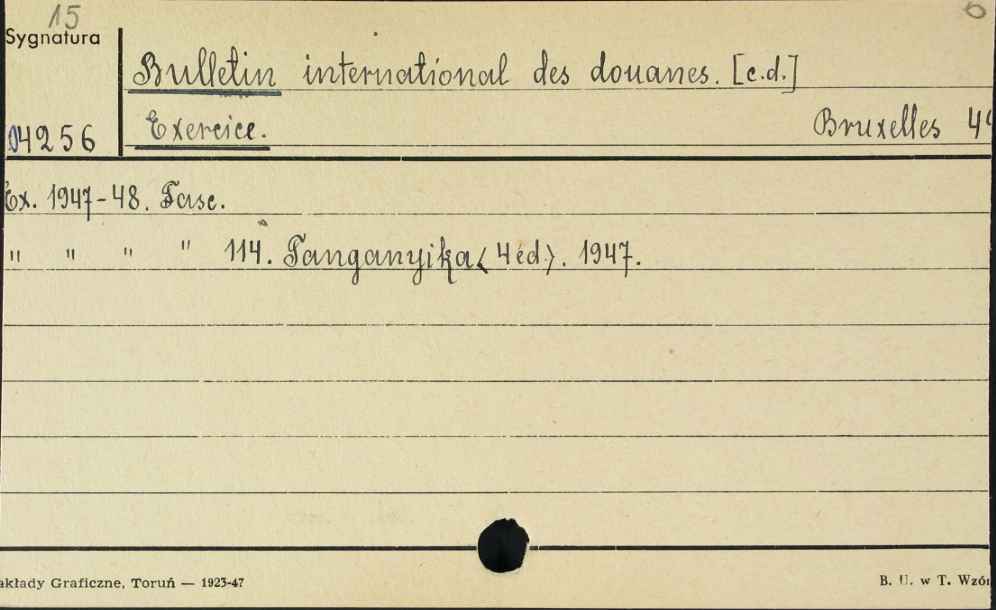 15
6
Sygnatura
Bulletin international des douanes. [c.d.]
04256
Exercice. Bruxelles 49
Ex. 1947-48. Fasc.
" " " " 114. Tanganyika <4 éd.>. 1947.
akłady Graficzne, Toruń — 1923-47
B. U. w T. Wzór